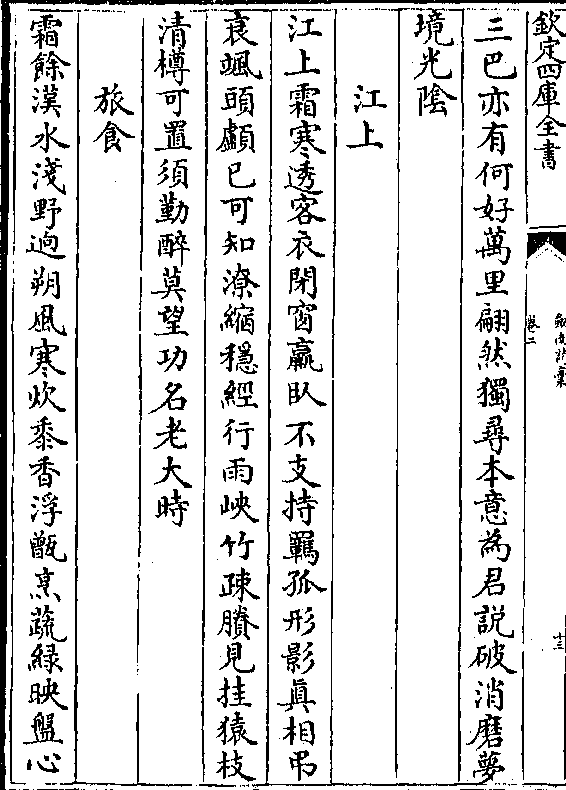 欽定四庫全書
劍南詩稾
卷二
十三
三巴亦有何好萬里翩然獨尋本意為君説破消磨夢
境光陰
江上
江上霜寒透客衣閉窗羸臥不支持羈孤形影真相弔
衰颯頭顱已可知潦縮穩經行雨峽竹疎賸見挂猿枝
清樽可置須勤醉莫望功名老大時
旅食
霜餘漢水淺野逈朔風寒炊黍香浮甑烹蔬緑映盤心